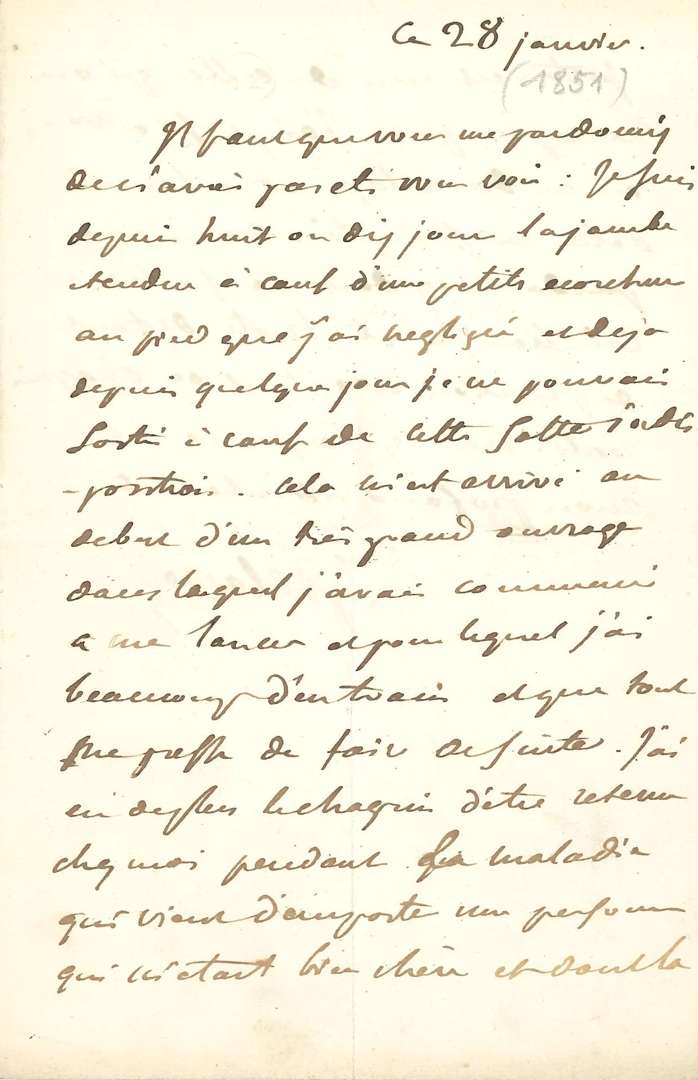 Ce 28 janvier.
(1851)
Il faut que vous me pardonniez
de n'avoir pas été vous voir : Je suis
depuis huit ou dix jours la jambe
etendue à cause d'une petite ecorchure
au pied que j'ai negligée et deja
depuis quelques jours je ne pouvais
sortir à cause de cette sotte indis
-position. Cela m'est arrivé au
debut d'un très grand ouvrage
dans lequel j'avais commencé
a me lancer et pour lequel j'ai
beaucoup d'entrain et que tout
me presse de faire de suite. J'ai
eu de plus le chagrin d'être retenu
chez moi pendant la maladie
qui vient d'emporter une personne
qui m'etait bien chère et dont la